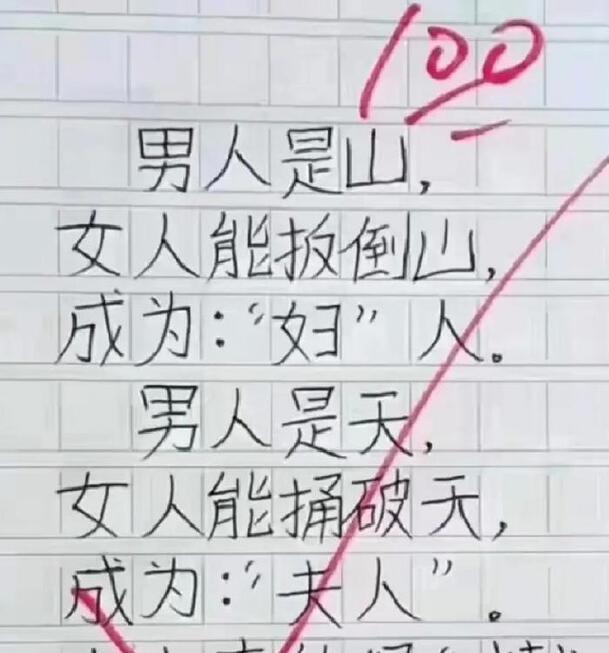 100
男人是山,
女人能扳倒山,
成为:“妇”人。
男人是天,
女人能捅破天,
成为:“夫人”。